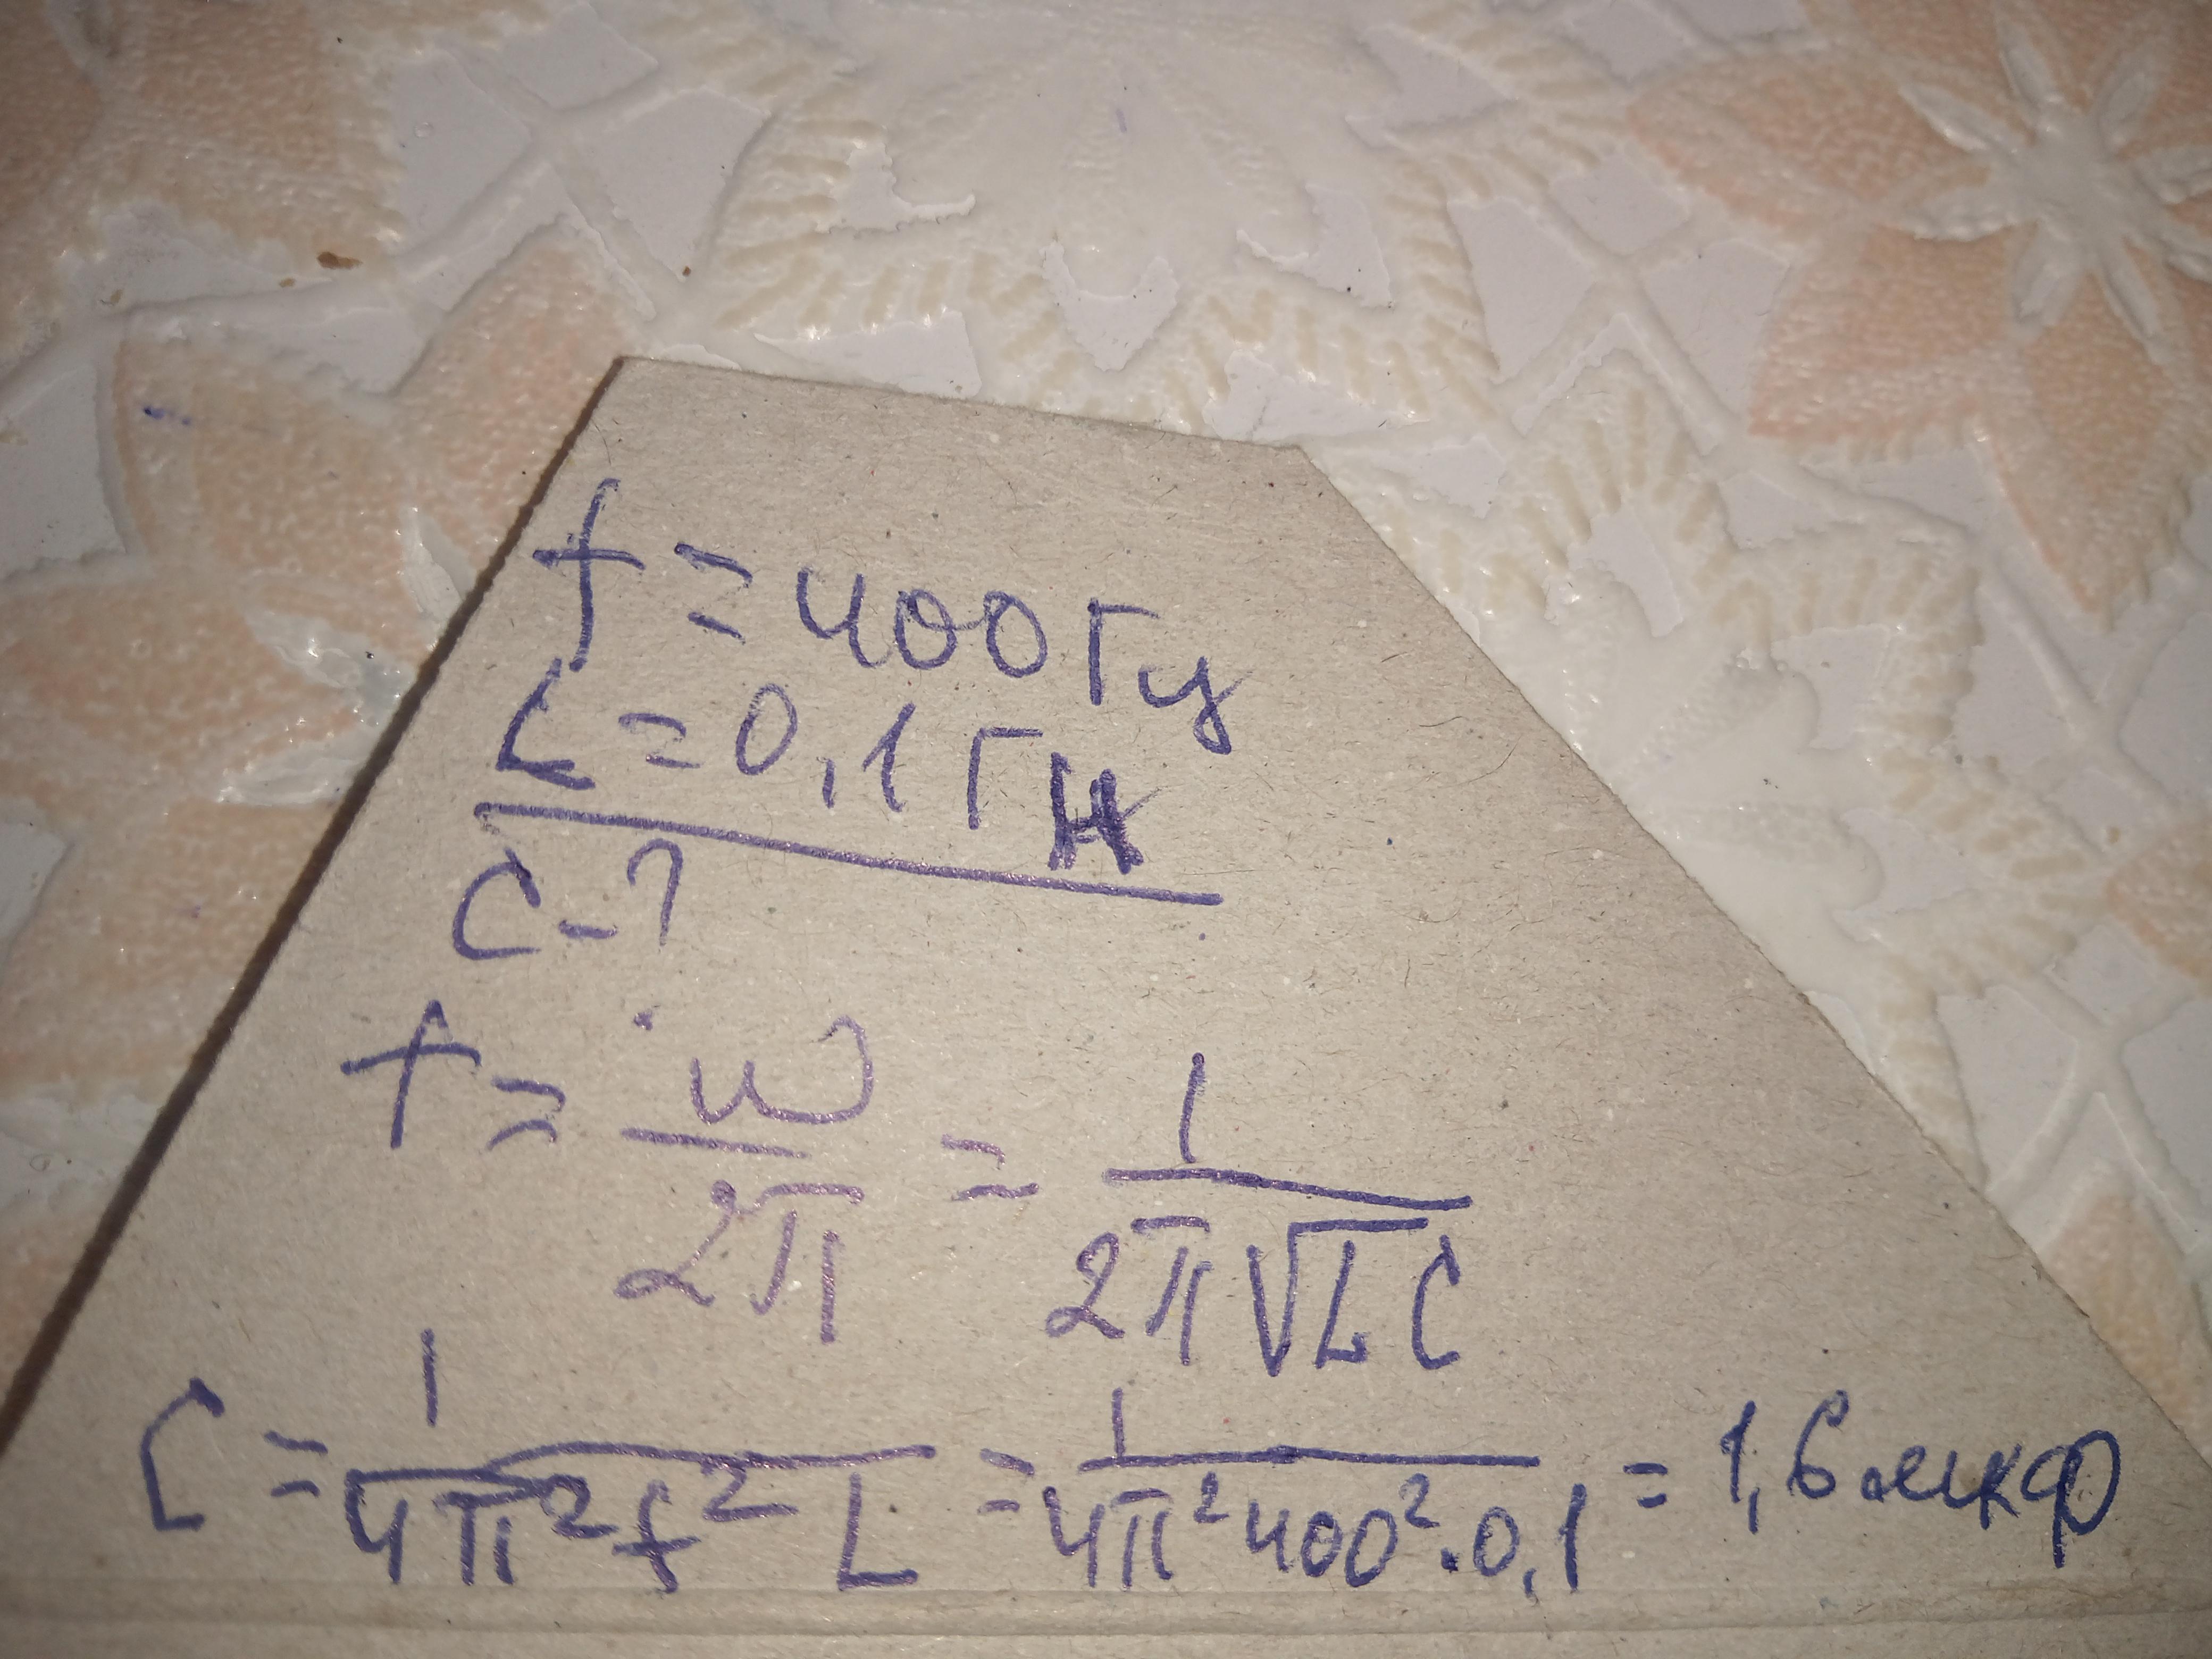 f = 400 Гц
L = 0,1 Гн
C - ?
f = ω/2π = 1/2π√LC
C = 1/4π²f²L = 1/4π²400²·0,1 = 1,6 мкф